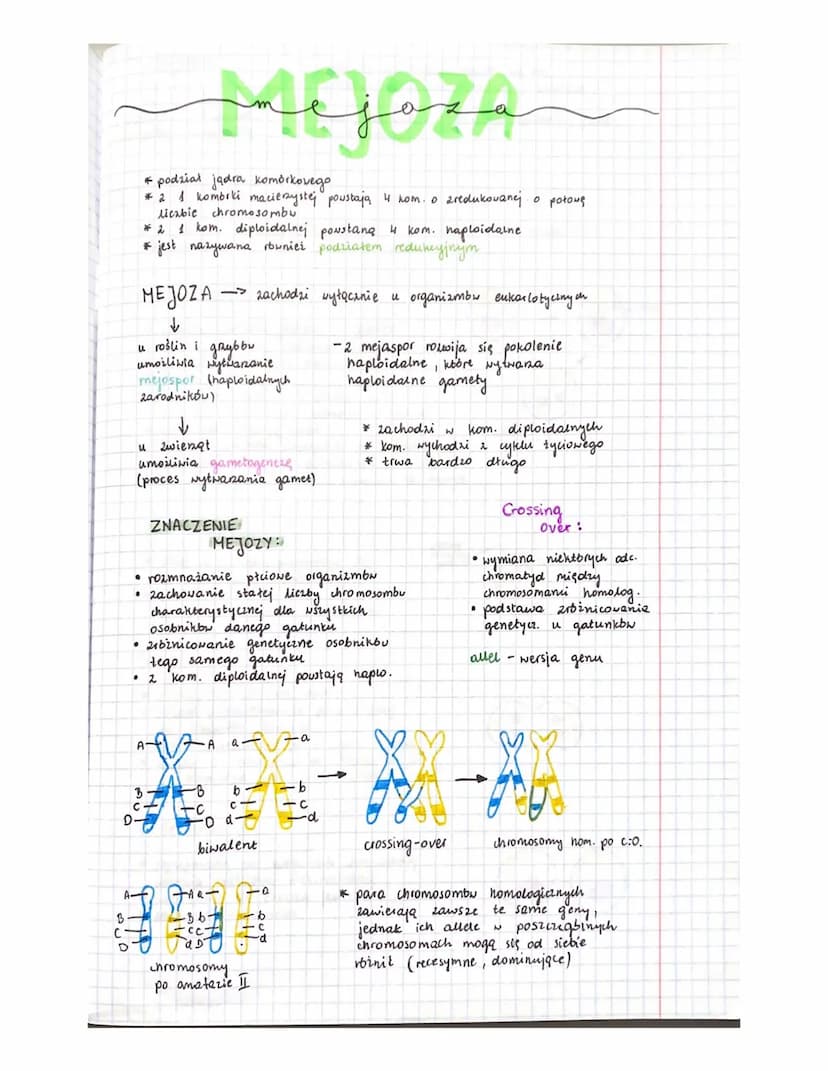 MEJOZA
mejoza
* podział jądra komórkowego
* z 1 komórki macierzystej powstają 4 kom. o zredukowanej o połowę
liczbie chromosomów
* z 1 kom. diploidalnej powstaną 4 kom. haploidalne
* jest nazywana również podziałem redukcyjnym
MEJOZA → zachodzi wyłącznie u organizmów eukariotycznych
↓
u roślin i grzybów
umożliwia wytwarzanie
mejospor (haploidalnych
zarodników)
- z mejaspor rozwija się pokolenie
haploidalne, które wytwarza
haploidalne gamety
↓
u zwierząt
umożliwia gametogenezę
(proces wytwarzania gamet)
* zachodzi w kom. diploidalnych
* kom. wychodzi z cyklu życiowego
* trwa bardzo długo
ZNACZENIE
MEJOZY:
• rozmnażanie płciowe organizmów
• zachowanie stałej liczby chromosomów
charakterystycznej dla wszystkich
osobników danego gatunku
• zróżnicowanie genetyczne osobników
tego samego gatunku
• z kom. diploidalnej powstają haplo.
Crossing
over:
• wymiana niektórych odc.
chromatyd między
chromosomami homolog.
• podstawa zróżnicowania
genetycz. u gatunków
allel - wersja genu
A A a a
B B b b
C C c c
D D d d
biwalent
crossing-over
chromosomy hom. po c:o.
A A a a
B B b b
C c C c
D d D d
chromosomy
po anafazie II
* para chromosomów homologicznych
zawierają zawsze te same geny,
jednak ich allele w poszczególnych
chromosomach mogą się od siebie
różnić (recesywne, dominujące)